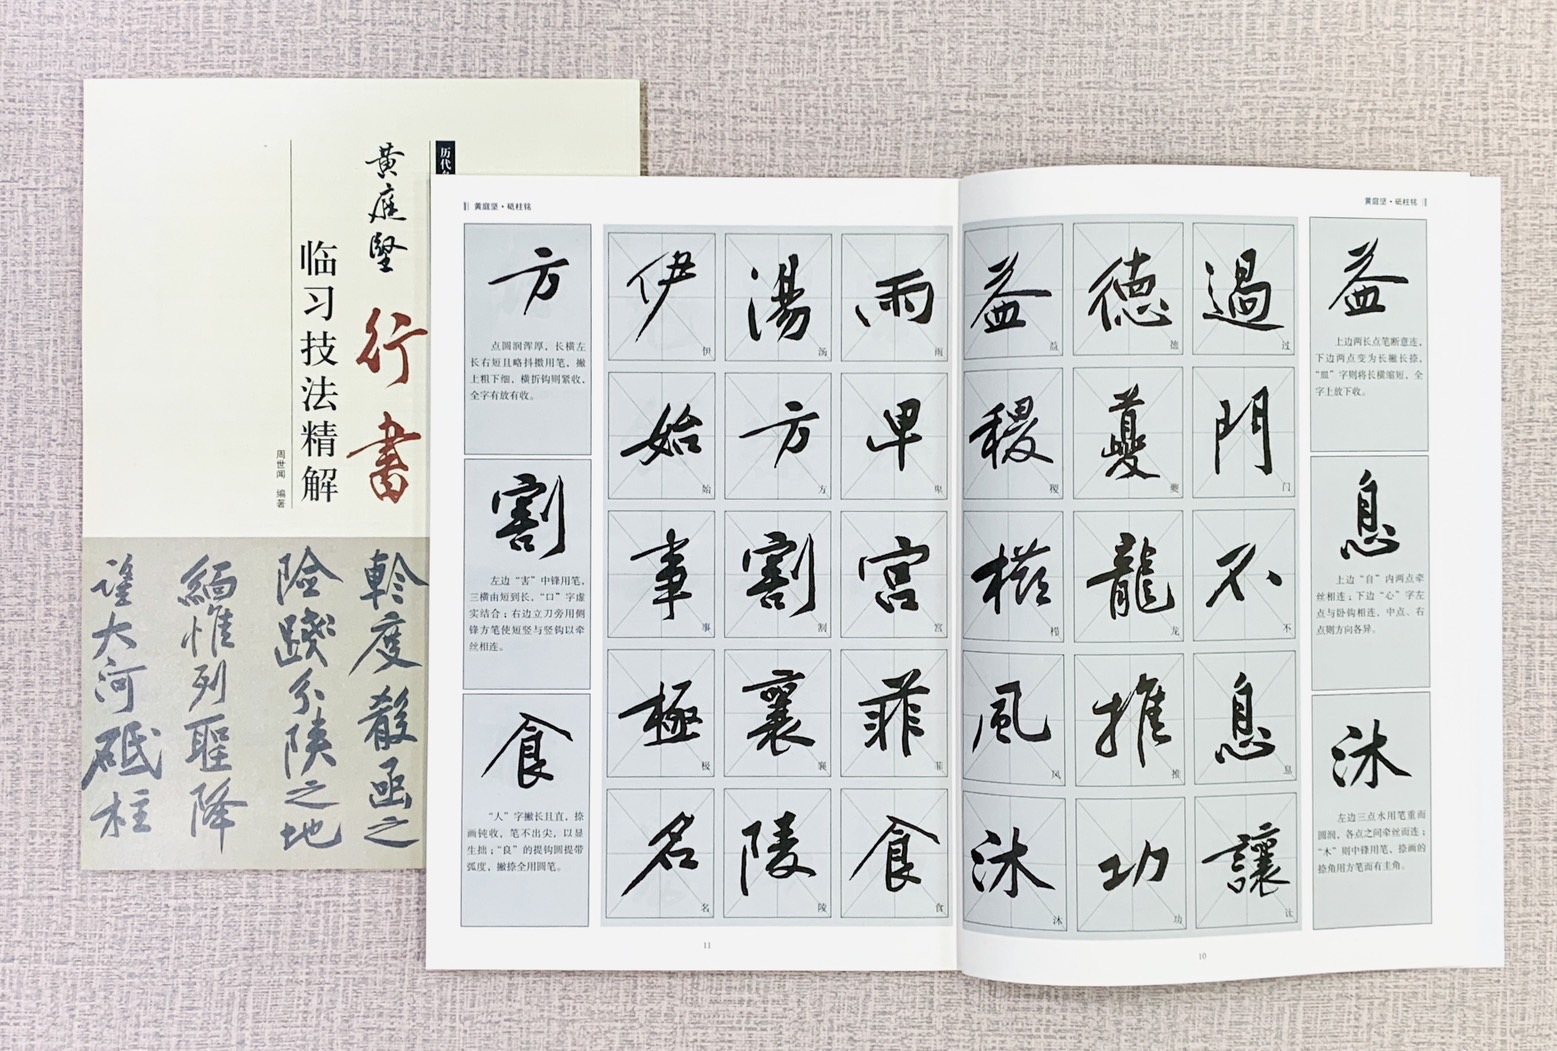 历代
黄庭坚
行书
临习技法精解
周世闻 编著
軨度殽函之
險踐分陝之地
緬惟列聖降
謹大河砥柱
黄庭坚·砥柱铭
益
上边两长点笔断意连，
下边两点变为长撇长捺，
“皿”字则将长横缩短，全
字上放下收。
息
上边“自”内两点牵
丝相连；下边“心”字左
点与卧钩相连，中点、右
点则方向各异。
沐
左边三点水用笔重而
圆润，各点之间牵丝而连；
“木”则中锋用笔，捺画的
捺角用方笔而有主角。
過 过
門 门
不 不
息 息
讓 让
德 德
夔 夔
龍 龙
推 推
功 功
益 益
稷 稷
風 风
沐 沐
10
黄庭坚·砥柱铭
雨 雨
卑 卑
宮 宫
菲 菲
食 食
湯 汤
方 方
割 割
襄 襄
陵 陵
伊 伊
始 始
事 事
極 极
名 名
方
点圆润浑厚，长横左
长右短且略抖擞用笔，撇
上粗下细，横折钩则紧收，
全字有放有收。
割
左边“害”中锋用笔，
三横由短到长，“口”字虚
实结合；右边立刀旁用侧
锋方笔使短竖与竖钩以牵
丝相连。
食
“人”字撇长且直，捺
画钝收，笔不出尖，以显
生拙；“良”的提钩圆提带
弧度，撇捺全用圆笔。
11